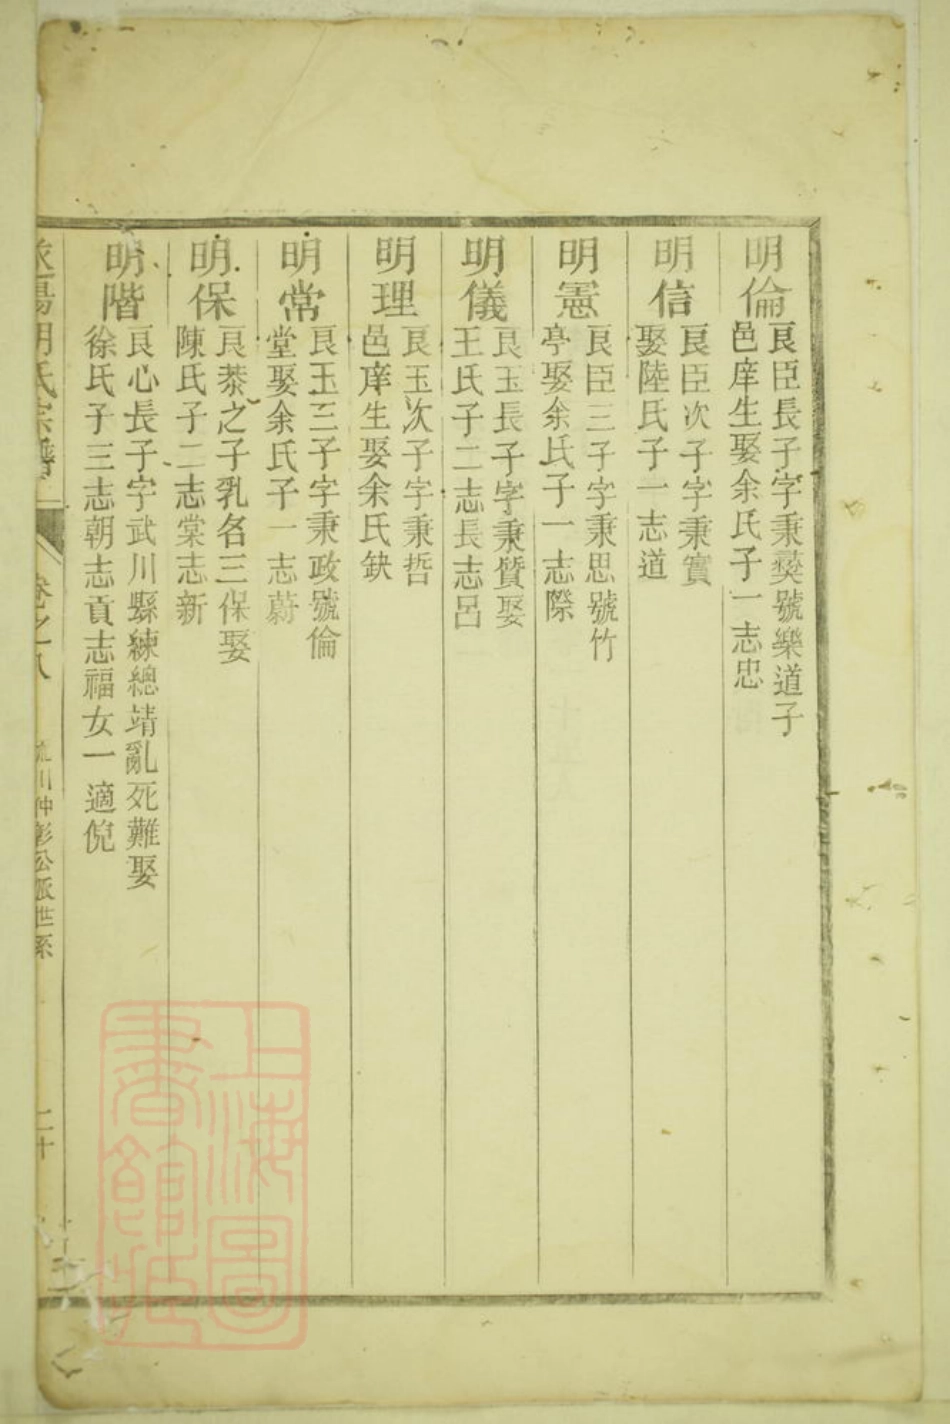 明倫
良臣長子字秉彛號樂道子
邑庠生娶余氏子一志忠
明信
良臣次子字秉實
娶陸氏子一志道
明憲
良臣三子字秉思號竹
亭娶余氏子一志際
明儀
良玉長子字秉質娶
王氏子二志長志呂
明理
良玉次子字秉哲
邑庠生娶余氏缺
明常
良玉三子字秉政號倫
堂娶余氏子一志蔚
明保
良恭之子乳名三保娶
陳氏子二志棠志新
明階
良心長子字武川縣練總靖亂死難娶
徐氏子三志朝志貢志福女一適倪
胡氏宗譜
卷之八
川仲彰公派世系
二十
上海圖
書館藏